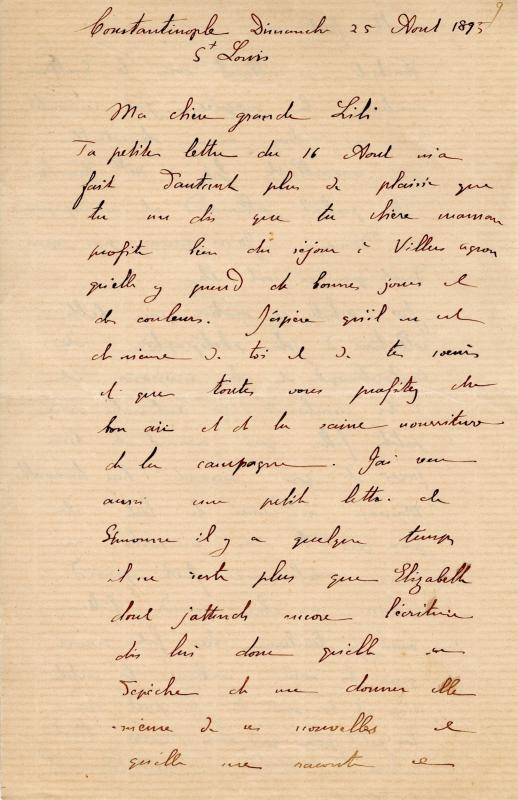 9
Constantinople Dimanche 25 Aout 1895
St Louis
Ma chère grande Lili
Ta petite lettre du 16 Aout m'a
fait d'autant plus de plaisir que
tu me dis que ta chère maman
profite bien du séjour à Villers agron
qu'elle y prend de bonnes joues et
des couleurs. J'espère qu'il en est
de même de toi et de tes soeurs
et que toutes vous profitez du
bon air et de la saine nourriture
de la campagne. J'ai reçu
aussi une petite lettre de
Simonne il y a quelque temps
il ne reste plus que Elizabeth
dont j'attends encore l'écriture
dis lui donc qu'elle se
dépêche de me donner elle
même de ses nouvelles et
qu'elle me raconte